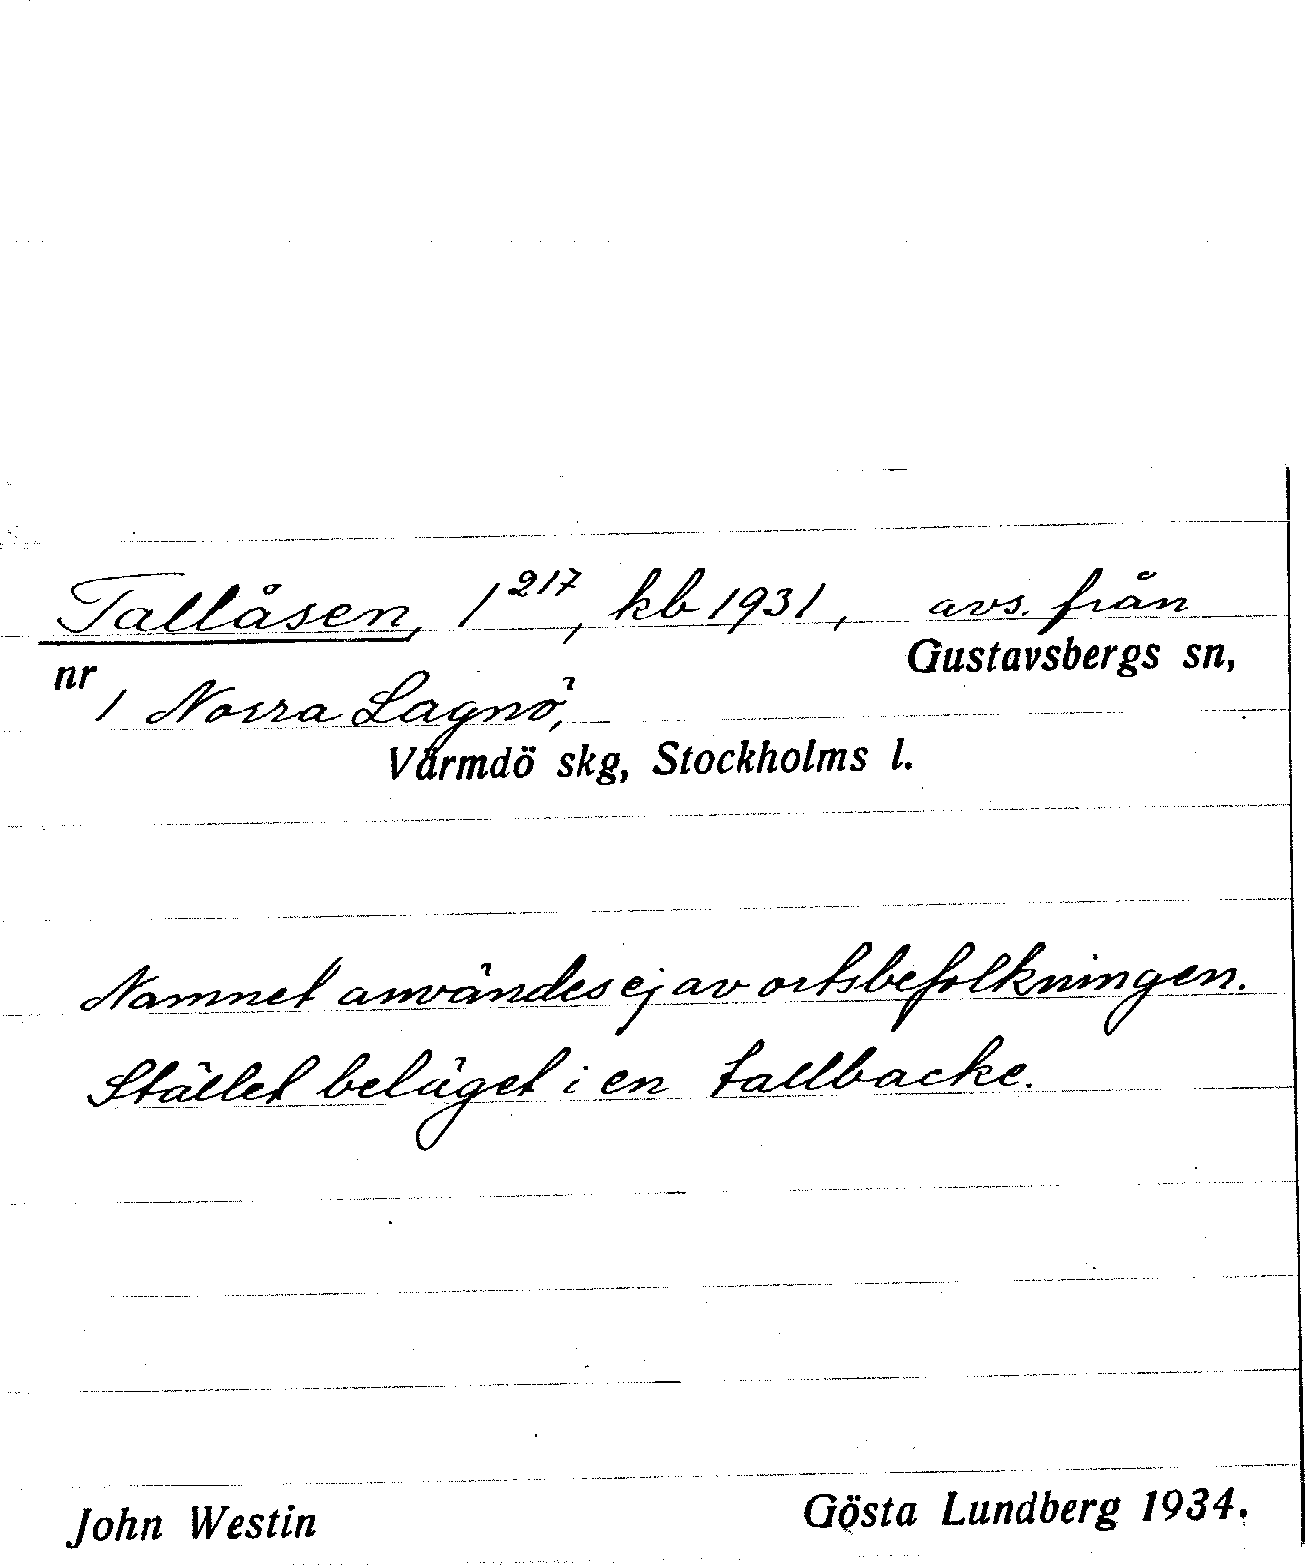 Tallåsen, 1²¹⁷, kb 1931, avs. från
nr 1 Norra Lagnö, Gustavsbergs sn,
Värmdö skg, Stockholms l.
Namnet användes ej av ortsbefolkningen.
Stället beläget i en tallbacke.
John Westin Gösta Lundberg 1934.